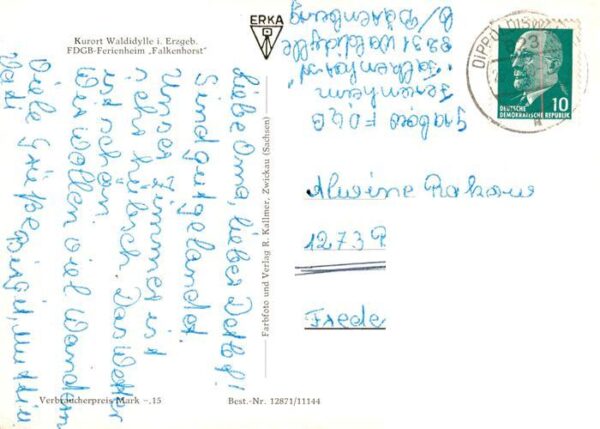 Kurort Waldidylle i. Erzgeb.
FDGB-Ferienheim „Falkenhorst"
ERKA
Liebe Oma, lieber Detlef!
Sind gut gelandet.
Unser Zimmer ist
sehr hübsch. Das Wetter
ist schön.
Wir wollen viel wandern
Viele Grüße Birgit, Mutti u
Vati
Verbraucherpreis Mark –,15
Best.-Nr. 12871/11144
Farbfoto und Verlag R. Kallmer, Zwickau (Sachsen)
FDGB
Ferienheim
"Falkenhorst"
8231 Waldidylle
b/ Bärenburg
DIPPOLDISW
DEUTSCHE
DEMOKRATISCHE REPUBLIK
10
Alwine
1273 P
Frede